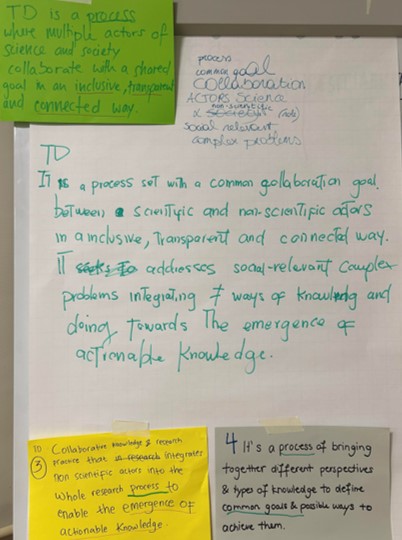 TD is a process
where multiple actors of
science and society
collaborate with a shared
goal in an inclusive, transparent
and connected way.
process
common goal
COllaboration
ACTORS Science
non-scientific
& societal (role)
social relevant
complex problems
TD
IT is a process set with a common gollaboration goal.
between scientific and non-scientific actors
in a inclusive, Transparent and connected way.
IT seeks to addresses social-relevant complex
problems integrating ≠ ways of knowing and
doing Towards The emergence of
actionable Knowledge.
10 Collaborative knowledge & research
3 practice that in research integrates
non scientific actors into the
whole research process to
enable the emergence of
actionable knowledge.
4 It's a process of bringing
together different perspectives
& types of knowledge to define
common goals & possible ways to
achieve them.